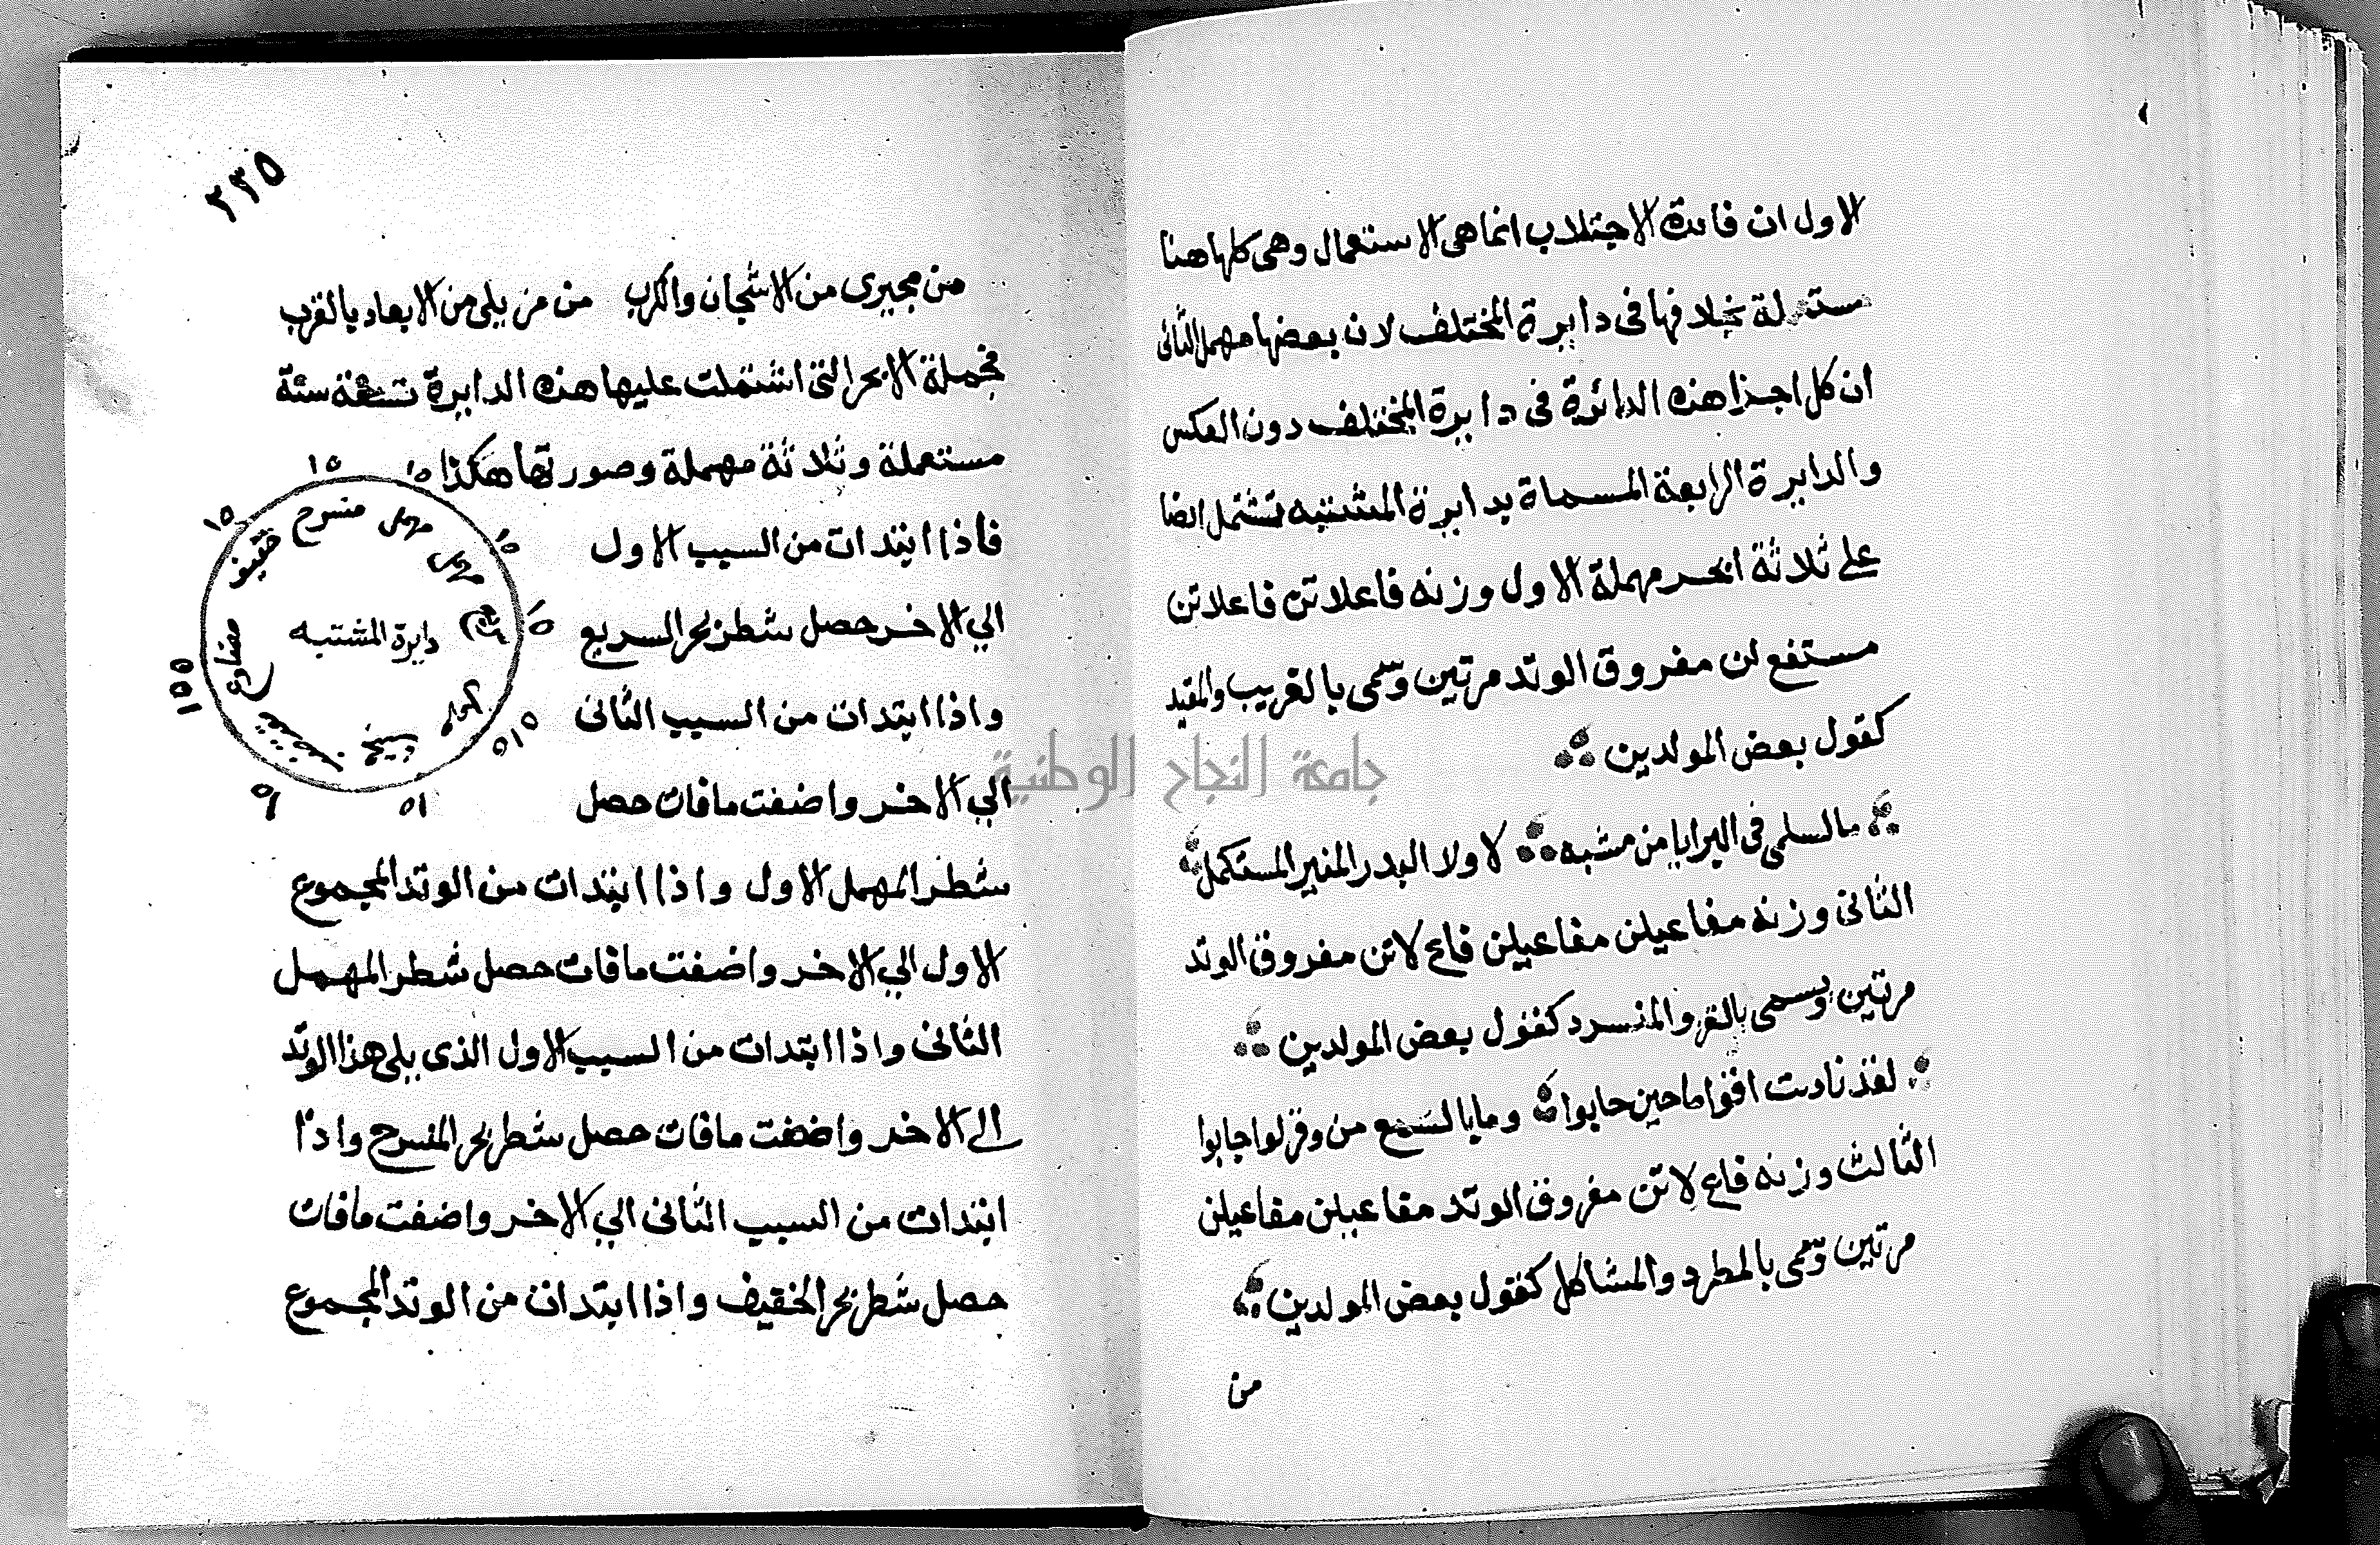 الاول ان فائدة الاجتلاب انما هى الاستعمال وهى كلها هنا
مستعملة بخلافها فى دايرة المختلف لان بعضها مهمل الثانى
ان كل اجزا هذه الدائرة فى دايرة المختلف دون العكس
والدايرة الرابعة المسماة بدايرة المشتبه تشتمل ايضا
على ثلاثة ابحر مهملة الاول وزنه فاعلاتن فاعلاتن
مستفع لن مفروق الوتد مرتين وسمى بالغريب والمتيد
كقول بعض المولدين
ما لسلمى فى البرايا من مشبه لا ولا البدر المنير المستكمل
الثانى وزنه مفاعيلن مفاعيلن فاع لاتن مفروق الوتد
مرتين ويسمى والمنسرد كقول بعض المولدين
لقد ناديت اقواما حين جابوا وما بالسمع من وقر لو اجابوا
الثالث وزنه فاع لاتن مفروق الوتد مفاعيلن مفاعيلن
مرتين وسمى بالمطرد والمشاكل كقول بعض المولدين
من
٢٣٥
من مجيرى من الاشجان والكرب من مزيلى من الابعاد بالقرب
فجملة الابحر التى اشتملت عليها هذه الدايرة تسعة ستة
مستعملة وثلاثة مهملة وصورتها هكذا
فاذا ابتدات من السبب الاول
الي الاخر حصل شطر بحر السريع
واذا ابتدات من السبب الثانى
الي الاخر واضفت مافات حصل
شطر المهمل الاول واذا ابتدات من الوتد المجموع
الاول الي الاخر واضفت مافات حصل شطر المهمل
الثانى واذا ابتدات من السبب الاول الذى يلى هذا الوتد
الى الاخر واضفت مافات حصل شطر بحر المنسرح واذا
ابتدات من السبب الثانى الي الاخر واضفت مافات
حصل شطر بحر الخفيف واذا ابتدات من الوتد المجموع
دايرة المشتبه
مهمل
مهمل
منسرح
خفيف
مضارع
جامعة النجاح الوطنية